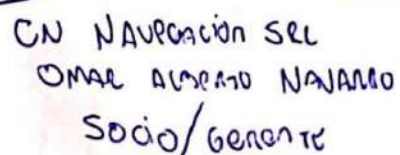 CN NAVEGACIÓN SRL
OMAR ALBERTO NAVARRO
SOCIO/GERENTE